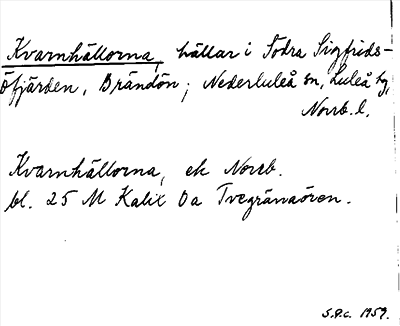 Kvarnhällorna, hällar i Södra Sigfrids-
öfjärden, Brändön; Nederluleå sn, Luleå tg,
Norrb. l.
Kvarnhällorna, ek Norrb.
bl. 25 M Kalix Oa Tvegränaören.
S.P.C. 1959.